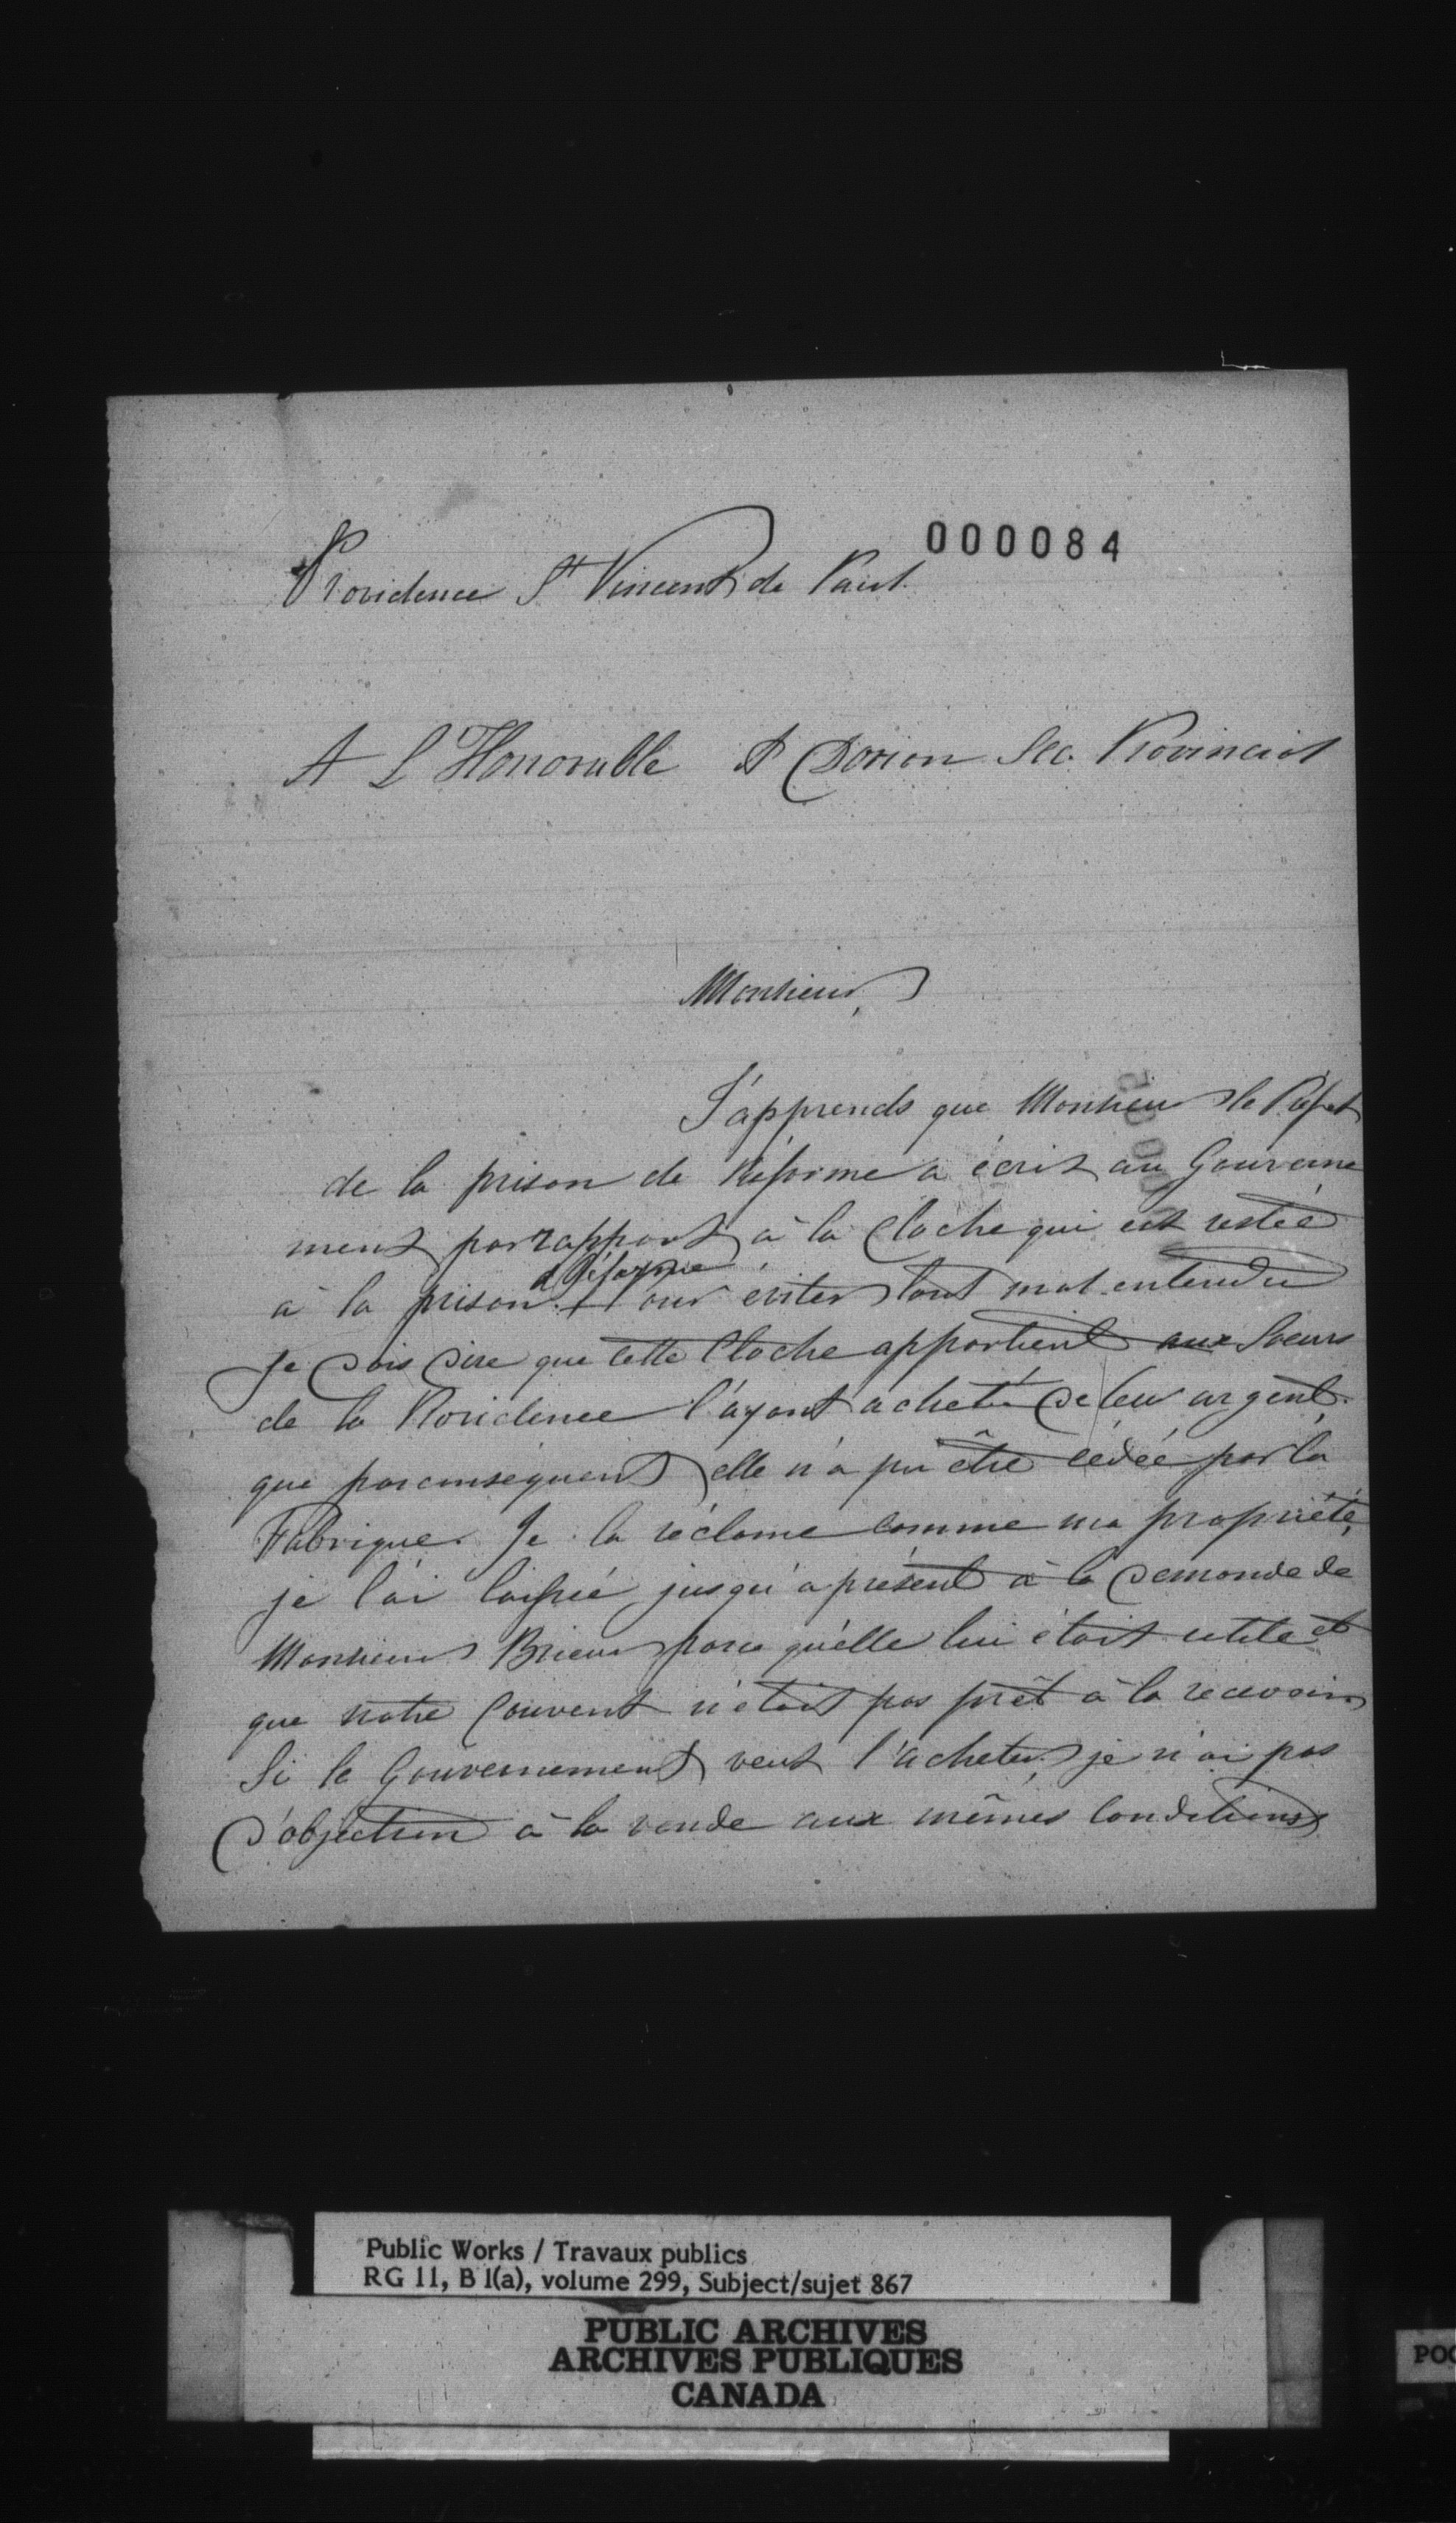 000084
Providence St Vincent de Paul.
A L'Honorable A Dorion Sec. Provincial
Monsieur,
J'apprends que Monsieur le Préfet
de la prison de Réforme a écrit au Gouverne
ment par rapport à la Cloche qui est restée
d Réforme
à la prison. Pour éviter tout mal-entendu
Je dois dire que cette Cloche appartient aux Soeurs
de la Providence l'ayant acheté de leur argent.
que par conséquent elle n'a pu être cédée par la
Fabrique. Je la réclame comme ma propriété,
je l'ai laissée jusqu'a présent à la demande de
Monsieur parce qu'elle lui était utile et
que notre Couvent n'était pas prêt à la recevoir
Si le Gouvernement veut l'acheter, je n'ai pas
d'objection à la vendre aux mêmes Conditions
Public Works / Travaux publics
RG 11, B 1(a), volume 299, Subject/sujet 867
PUBLIC ARCHIVES
ARCHIVES PUBLIQUES
CANADA